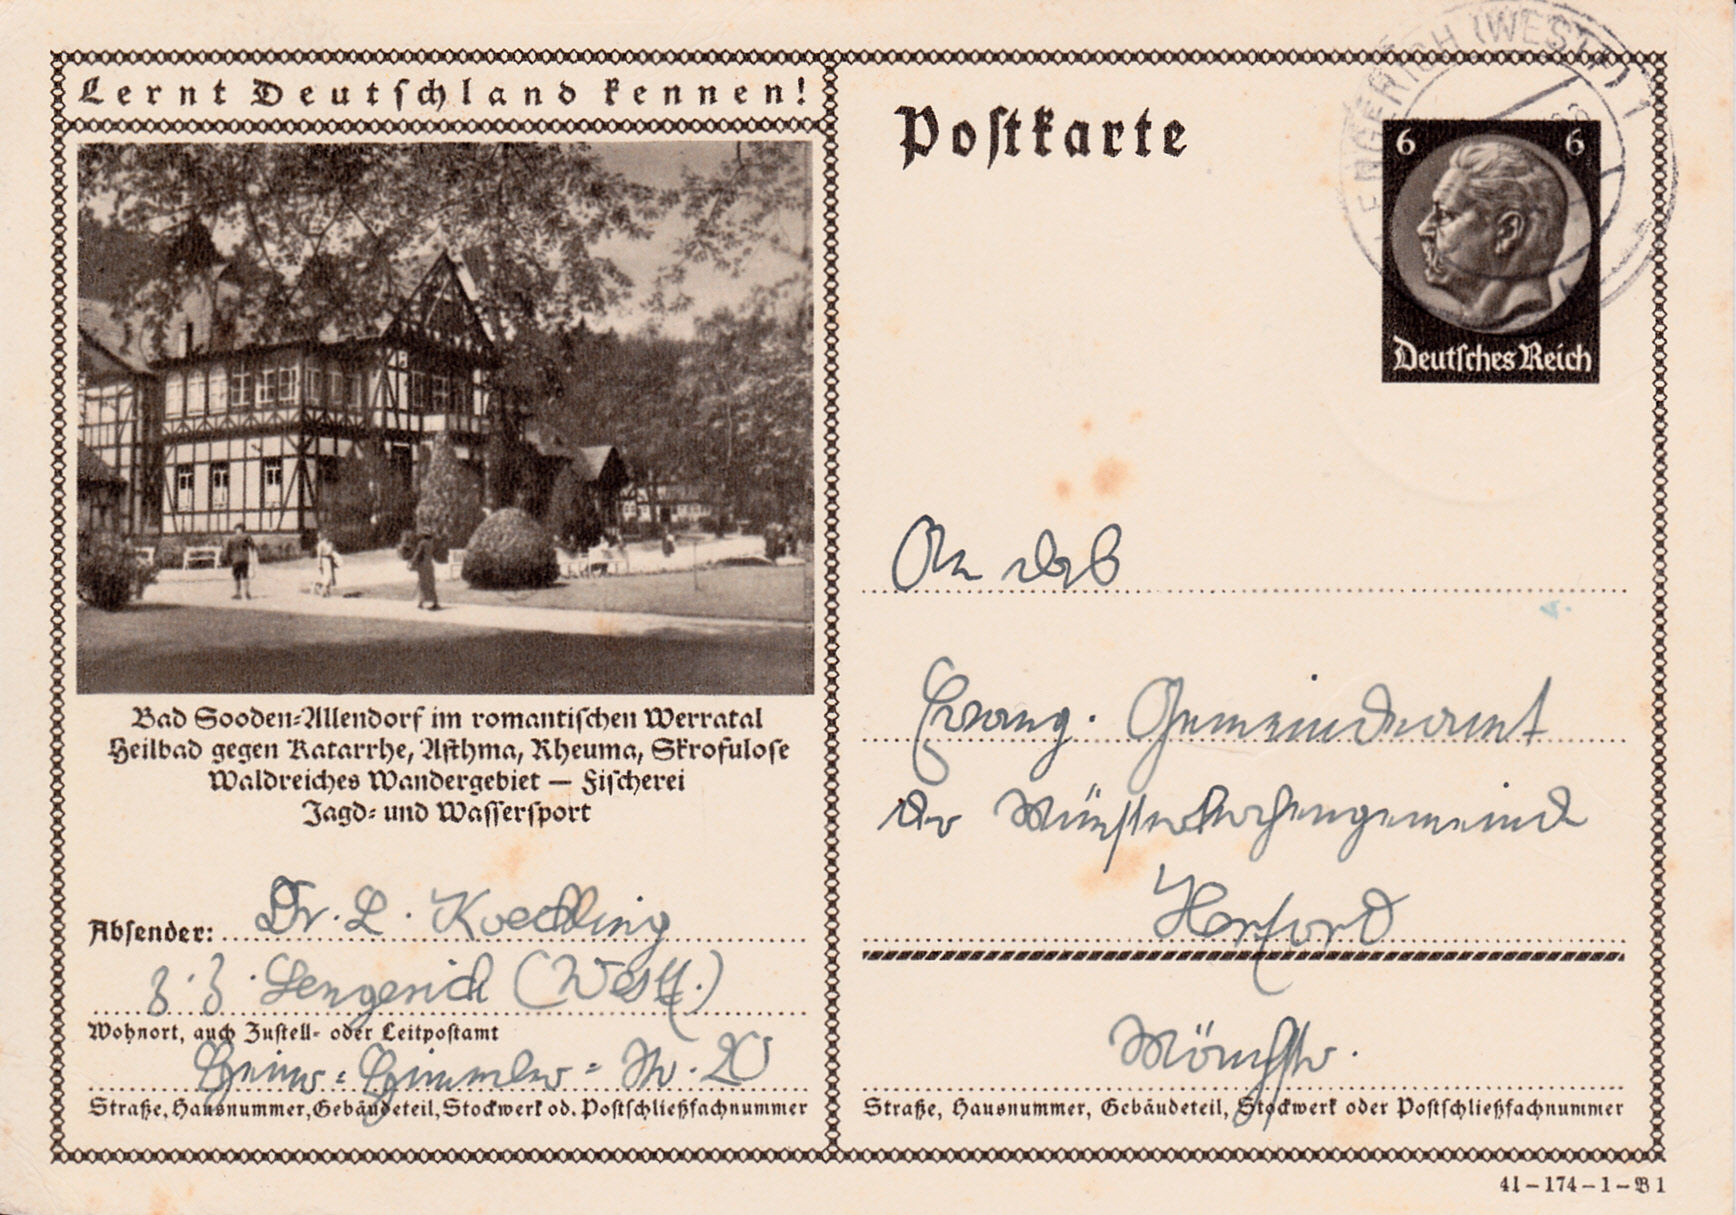 Lernt Deutschland kennen!
Bad Sooden-Allendorf im romantischen Werratal
Heilbad gegen Katarrhe, Asthma, Rheuma, Skrofulose
Waldreiches Wandergebiet — Fischerei
Jagd- und Wassersport
Absender: Dr. L. Koechling
z. Z. Lengerich (Westf.)
Wohnort, auch Zustell- oder Leitpostamt
Heinr.-Himmler-Str. 20
Straße, Hausnummer, Gebäudeteil, Stockwerk od. Postschließfachnummer
Postkarte
LENGERICH (WESTF) 1
6 6
Deutsches Reich
An das
Evang. Gemeindeamt
der Münsterkirchengemeinde
Herford
Mönchstr.
Straße, Hausnummer, Gebäudeteil, Stockwerk oder Postschließfachnummer
41-174-1-B 1